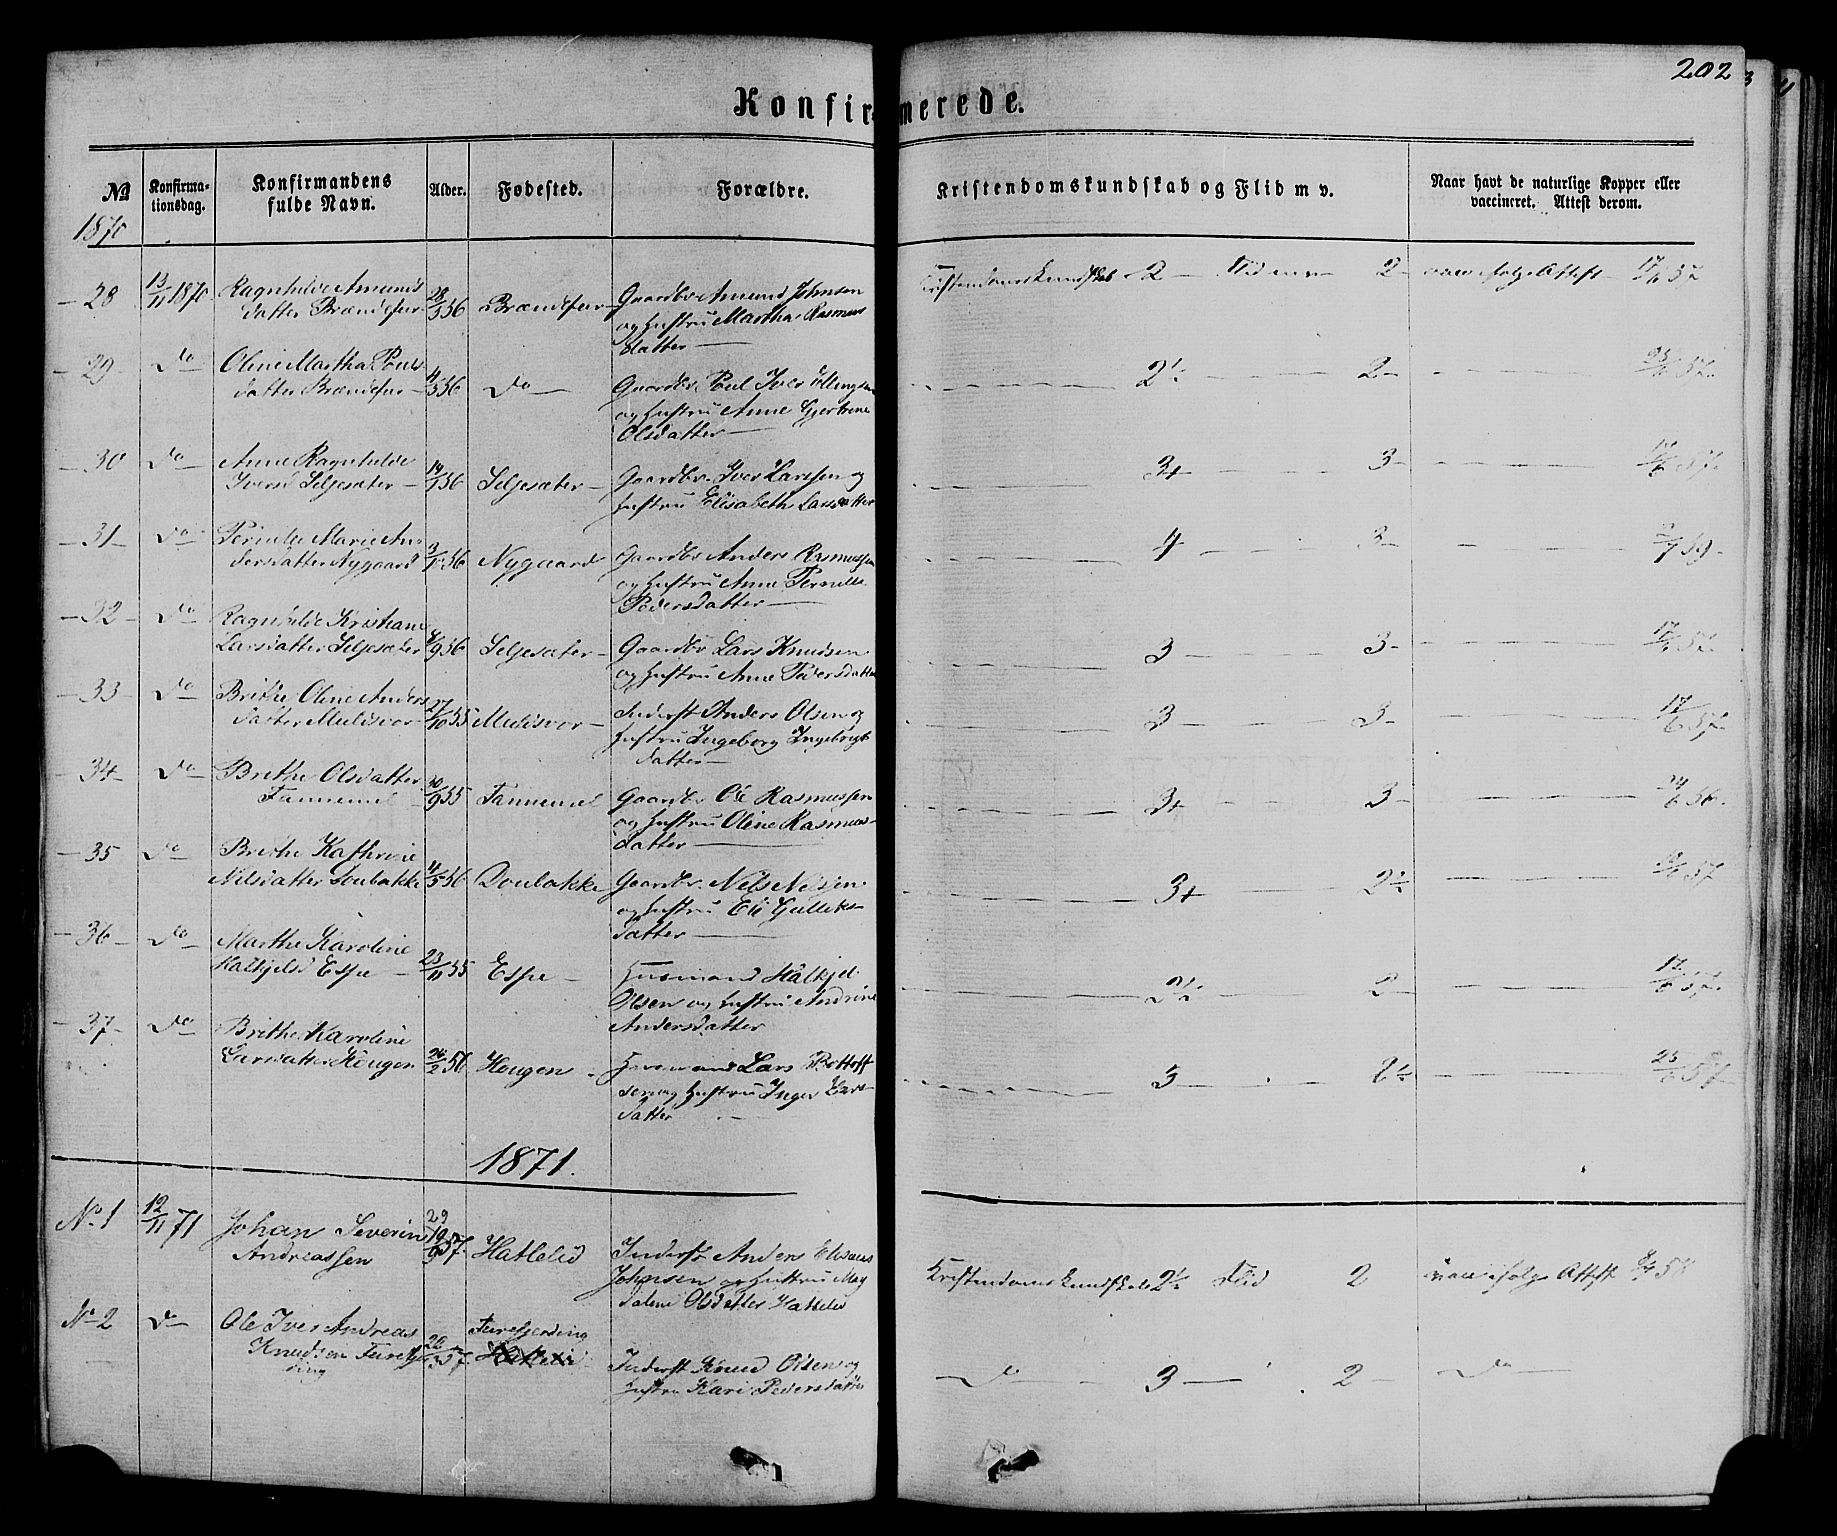 202
Konfirmerede.
No
Konfirma-
tionsdag.
Konfirmandens
fulde Navn.
Alder.
Fødested.
Forældre.
Kristendomskundskab og Flid m v.
Naar havt de naturlige Kopper eller
vaccineret. Attest derom.
1870
28 13/11 1870 Ragnhilde Amunds
datter Brændefur 28/3 56 Brændefur Gaardbr Amund Johnsen
og hustru Martha Rasmus
datter
Kristendomskundskab 2 Flid m v 2 vacc ifølge Attest 17/6 57
29 do Oline Martha Pouls
datter Brændefur 11/3 56 do Gaardbr Poul Iver Ellingsen
og hustru Anne Gjertrine
Olsdatter
2½ 2 57
30 do Anne Ragnhilde
Iversd Seljesæter 19/1 56 Seljesæter Gaardbr. Iver Larssen og
hustru Elisabeth Larsdatter
3+ 3 57
31 do Pernille Marie An-
dersdatter Nygaard 56 Nygaard Gaardbr Anders Rasmussen
og hustru Anne Pernille
Pedersdatter
4 3 59
32 do Ragnhilde Kristiane
Larsdatter Seljesæter 56 Seljesæter Gaardbr Lars Knudsen
og hustru Anne Pedersdatter
3 3 17/6 57
33 do Brithe Oline Anders
datter Muldsvor 27/10 55 Muldsvor Inderst Anders Olsen og
hustru Ingeborg Ingebrigts
datter
3 3 17/6 57
34 do Brithe Olsdatter
Tannemel 30/9 55 Tannemel Gaardbr Ole Rasmussen
og hustru Oline Rasmus-
datter
3+ 3 56
35 do Brithe Kathrine
Nilsdatter Doubakke 11/5 56 Doubakke Gaardbr. Nils Nilsen
og hustru Eli Gulleks
datter
3+ 2½ 57
36 do Marthe Karoline
Halkjelsd Espe 23/11 55 Espe Husmand Halkjel
Olsen og hustru Andrine
Andersdatter
2½ 2 17/6 57
37 do Brithe Karoline
Larsdatter Hougen 26/2 56 Hougen Husmand Lars
sen og hustru Inger Lars
datter
3 2½ 57
1871.
No 1 12/11 71 Johan Severin
Andreassen 57 Hatlelid Inderst Anders
Johnsen og hustru Mag
dalene Olsdatter Hatlelid
Kristendomskundskab 2½ Flid 2 vacc ifølge Attest
No 2 do Ole Iver Andreas
Knudsen Furefjor
ding 57 Furefjording
Hatlelid Inderst Knud Olsen og
hustru Kari Pedersdatter
do 3 2 do